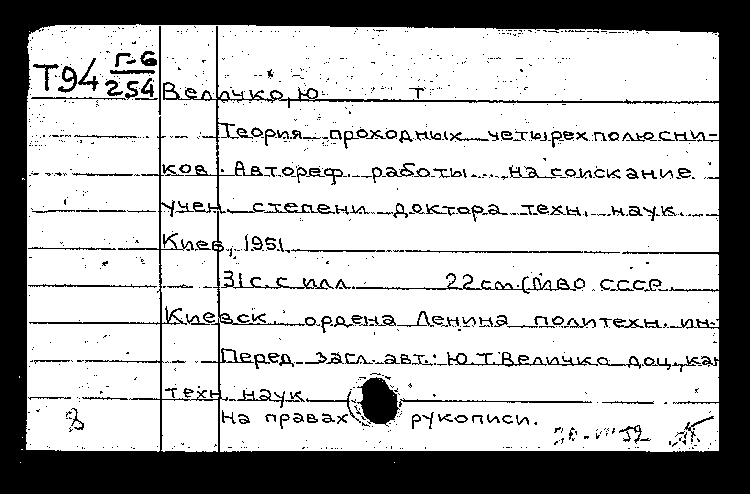 Т94 Г-6
254
Величко, Ю Т
Теория проходных четырехполюсни-
ков. Автореф. работы... на соискание
учен. степени доктора техн. наук.
Киев, 1951.
31 с. с илл. 22 см. (МВО СССР.
Киевск. ордена Ленина политехн. ин-
Перед загл. авт.: Ю.Т. Величко доц., кан
техн. наук.
На правах рукописи.
30-VIII 52